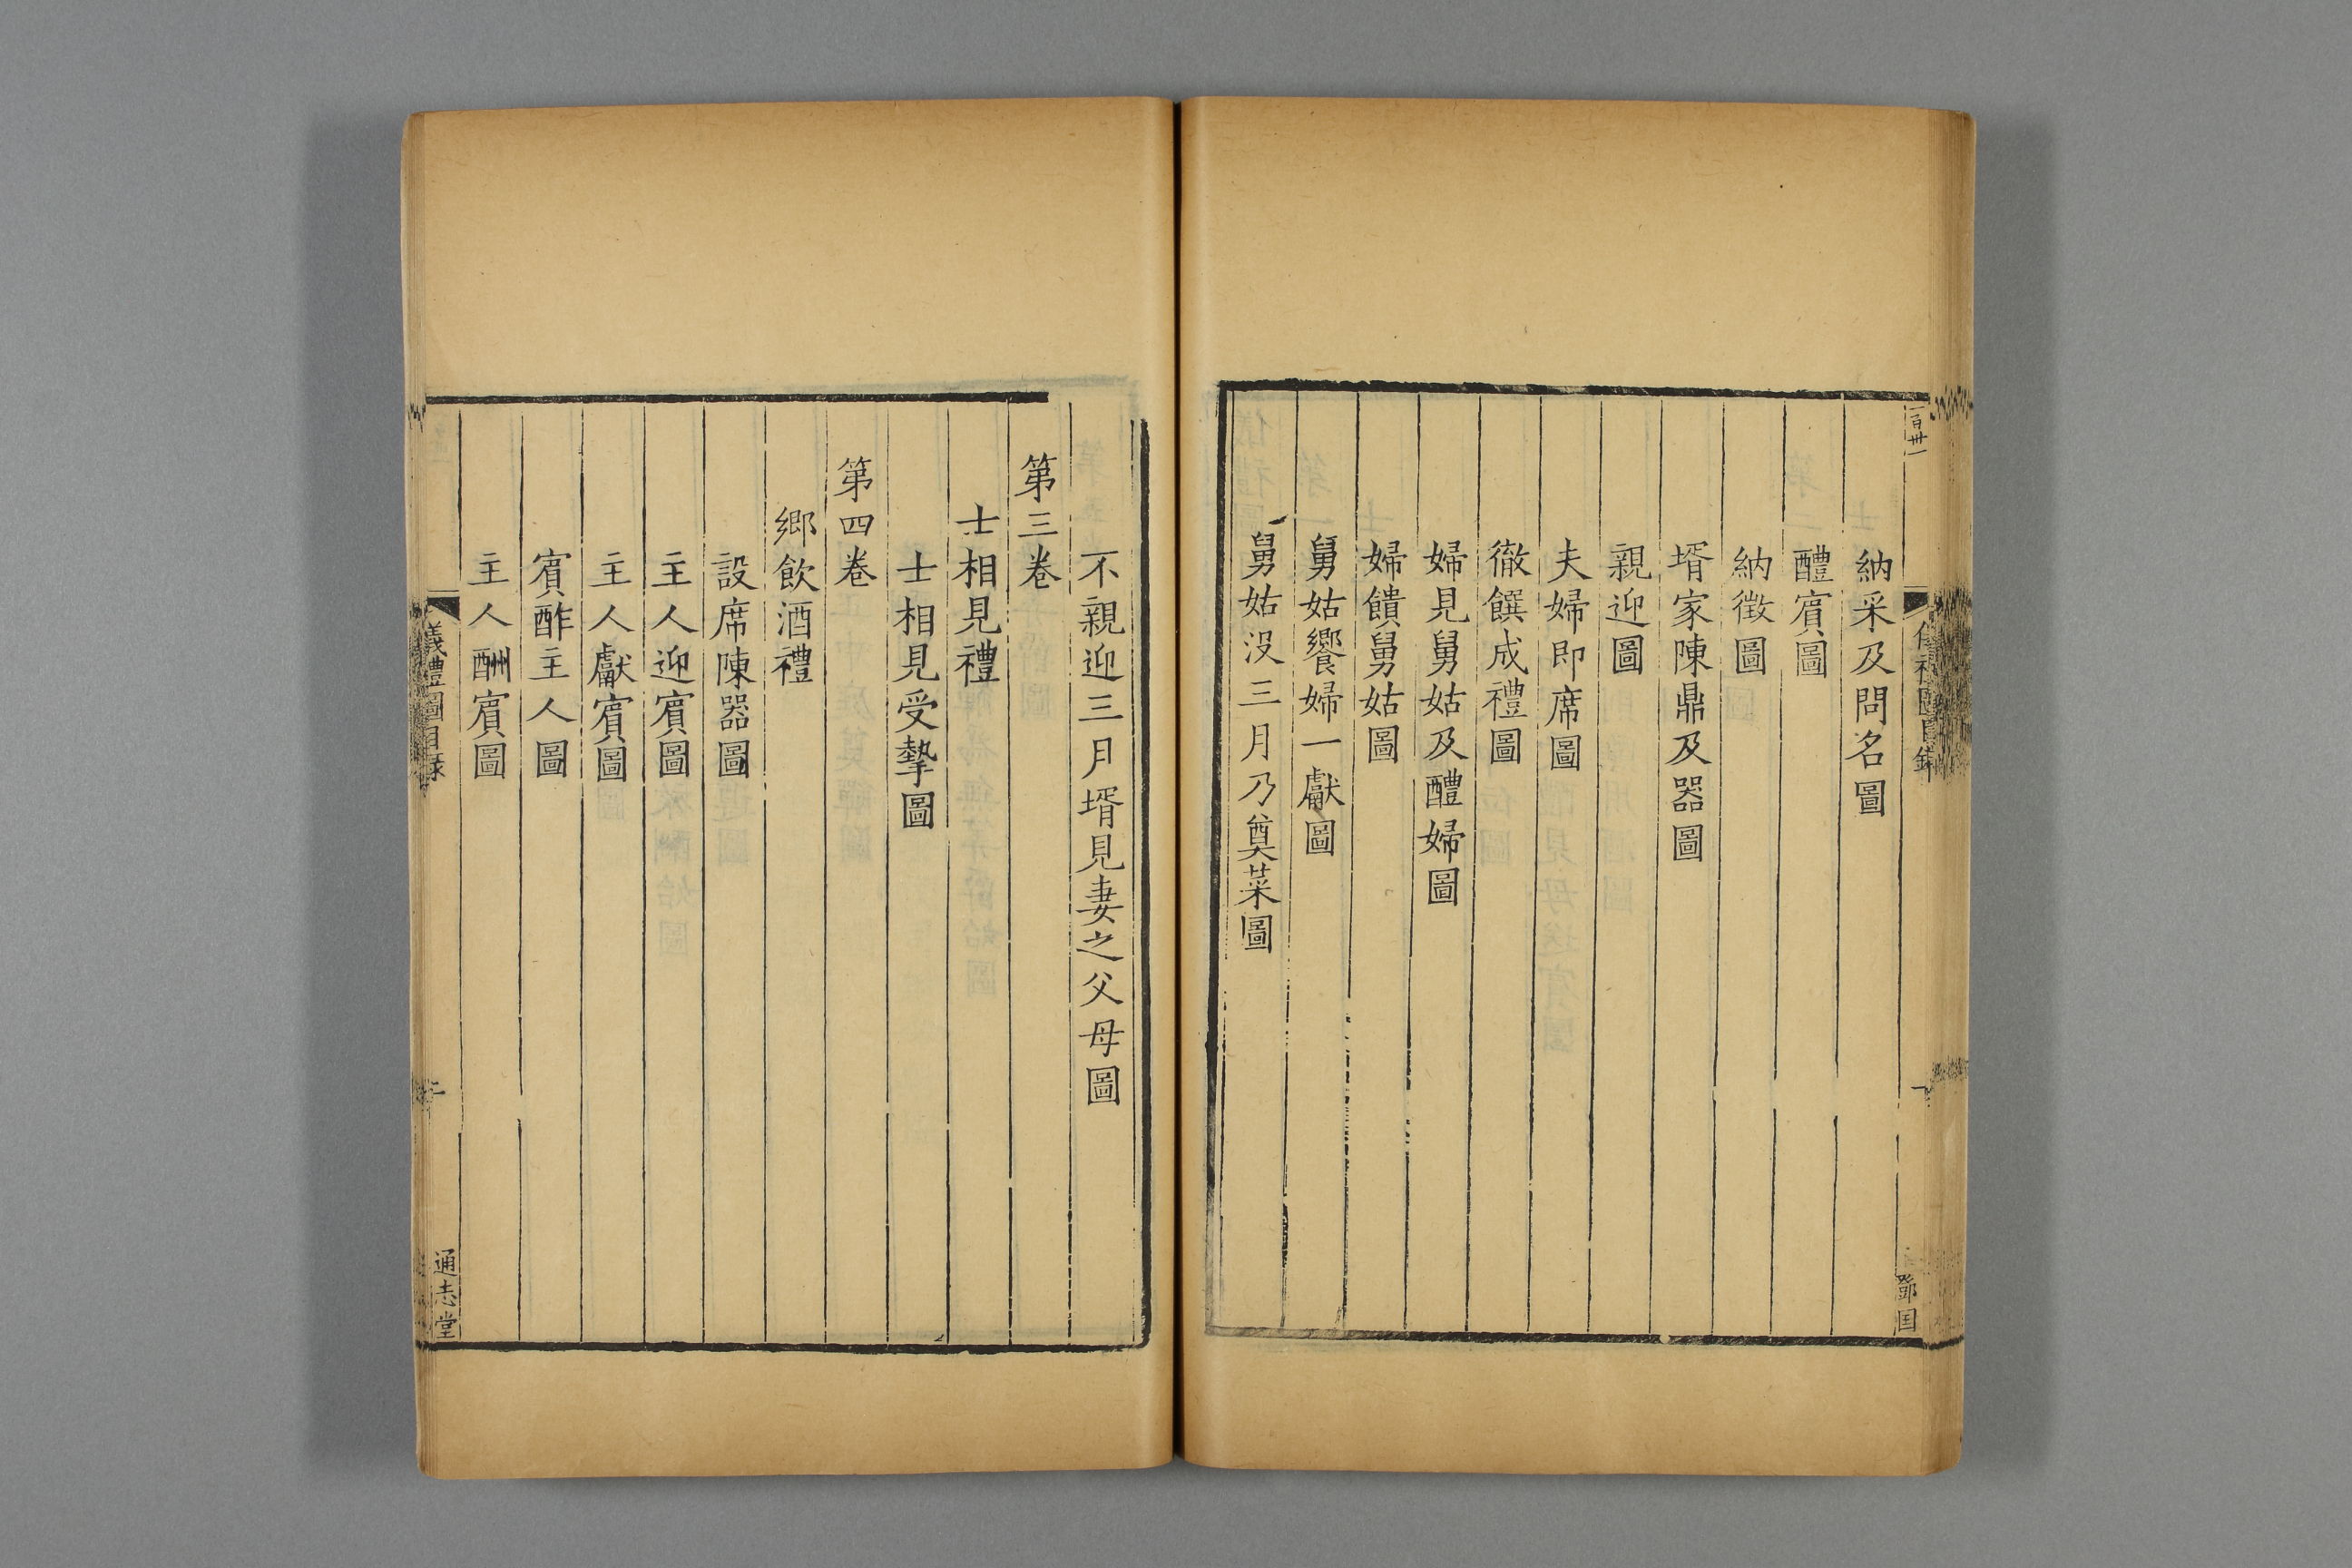 納采及問名圖
醴賔圖
納徴圖
壻家陳鼎及器圖
親迎圖
夫婦即席圖
徹饌成禮圖
婦見舅姑及醴婦圖
婦饋舅姑圖
舅姑饗婦一獻圖
舅姑没三月乃奠菜圖
不親迎三月壻見妻之父母圖
第三卷
士相見禮
士相見受摯圖
第四卷
鄉飲酒禮
設席陳器圖
主人迎賔圖
主人獻賔圖
賔酢主人圖
主人酬賔圖
儀禮圖目録
二
通志堂